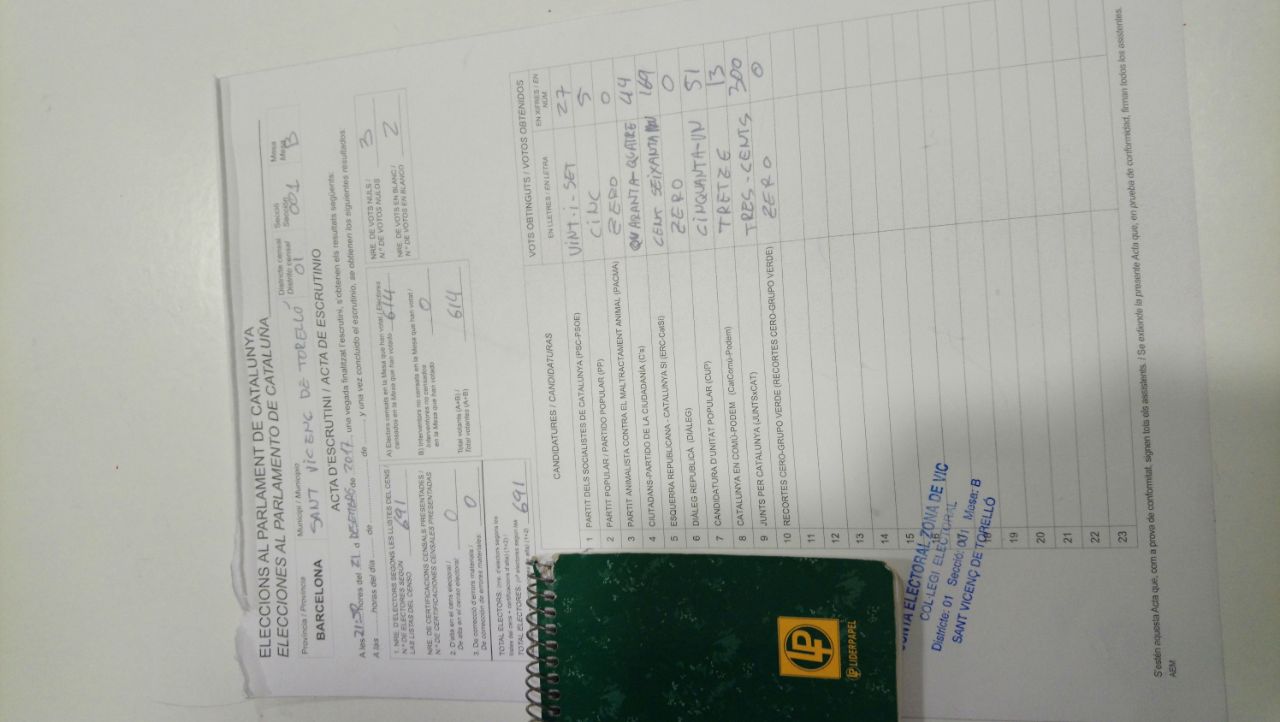 ELECCIONS AL PARLAMENT DE CATALUNYA
ELECCIONES AL PARLAMENTO DE CATALUÑA
Província / Provincia Municipi / Municipio Districte censal Secció Mesa
Distrito censal Sección Mesa
BARCELONA SANT VICENÇ DE TORELLÓ 01 001 B
ACTA D'ESCRUTINI / ACTA DE ESCRUTINIO
A les 21:30 hores del 21 d DESEMBRE de 2017, una vegada finalitzat l'escrutini, s'obtenen els resultats següents:
A las horas del día de de , y una vez concluido el escrutinio, se obtienen los siguientes resultados:
1. NRE. D'ELECTORS SEGONS LES LLISTES DEL CENS /
N.º DE ELECTORES SEGÚN
LAS LISTAS DEL CENSO 691
NRE. DE CERTIFICACIONS CENSALS PRESENTADES /
N.º DE CERTIFICACIONES CENSALES PRESENTADAS
2. D'alta en el cens electoral /
De alta en el censo electoral 0
3. De correcció d'errors materials /
De corrección de errores materiales 0
TOTAL ELECTORS
TOTAL ELECTORES 691
A) Electors censats en la Mesa que han votat / Electores
censados en la Mesa que han votado 614
B) Interventors no censats en la Mesa que han votat /
Interventores no censados
en la Mesa que han votado 0
Total votants (A+B) /
Total votantes (A+B) 614
NRE. DE VOTS NULS /
N.º DE VOTOS NULOS 3
NRE. DE VOTS EN BLANC /
N.º DE VOTOS EN BLANCO 2
CANDIDATURES / CANDIDATURAS VOTS OBTINGUTS / VOTOS OBTENIDOS
EN LLETRES / EN LETRA EN XIFRES / EN NÚM.
1 PARTIT DELS SOCIALISTES DE CATALUNYA (PSC-PSOE) VINT-I-SET 27
2 PARTIT POPULAR / PARTIDO POPULAR (PP) CINC 5
3 PARTIT ANIMALISTA CONTRA EL MALTRACTAMENT ANIMAL (PACMA) ZERO 0
4 CIUTADANS-PARTIDO DE LA CIUDADANÍA (C's) QUARANTA-QUATRE 44
5 ESQUERRA REPUBLICANA - CATALUNYA SÍ (ERC-CatSÍ) CENT SEIXANTA 169
6 DIÀLEG REPUBLICÀ (DIÀLEG) ZERO 0
7 CANDIDATURA D'UNITAT POPULAR (CUP) CINQUANTA-UN 51
8 CATALUNYA EN COMÚ-PODEM (CatComú-Podem) TRETZE 13
9 JUNTS PER CATALUNYA (JUNTSxCAT) TRES-CENTS 300
10 RECORTES CERO-GRUPO VERDE (RECORTES CERO-GRUPO VERDE) ZERO 0
11
12
13
14
15
16
18
19
20
21
22
23
JUNTA ELECTORAL ZONA DE VIC
COL·LEGI ELECTORAL
Districte: 01 Secció: 001 Mesa: B
SANT VICENÇ DE TORELLÓ
S'estén aquesta Acta que, com a prova de conformitat, signen tots els assistents. / Se extiende la presente Acta que, en prueba de conformidad, firman todos los asistentes.
AEM
LP
LIDERPAPEL